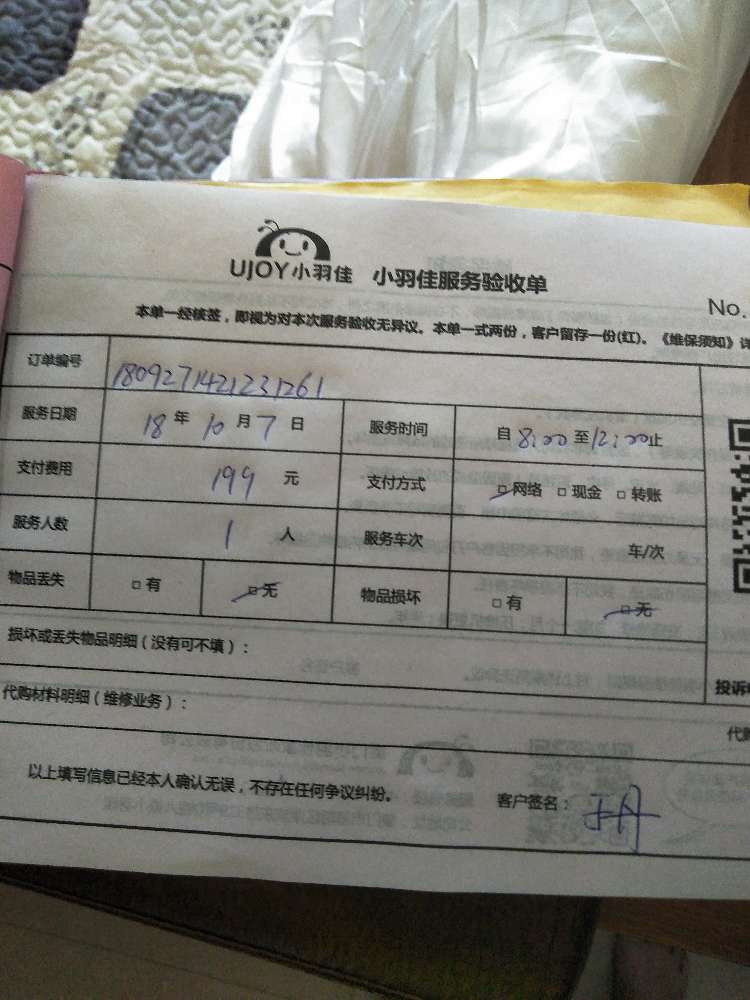 UJOY小羽佳 小羽佳服务验收单
No.
本单一经核签，即视为对本次服务验收无异议。本单一式两份，客户留存一份(红)。《维保须知》详
订单编号 180927142123126​1
服务日期 18 年 10 月 7 日 服务时间 自 8:00 至 12:00 止
支付费用 199 元 支付方式 网络 现金 转账
服务人数 1 人 服务车次 车/次
物品丢失 有 无 物品损坏 有 无
损坏或丢失物品明细（没有可不填）：
投诉
代购材料明细（维修业务）：
代购
以上填写信息已经本人确认无误，不存在任何争议纠纷。 客户签名：